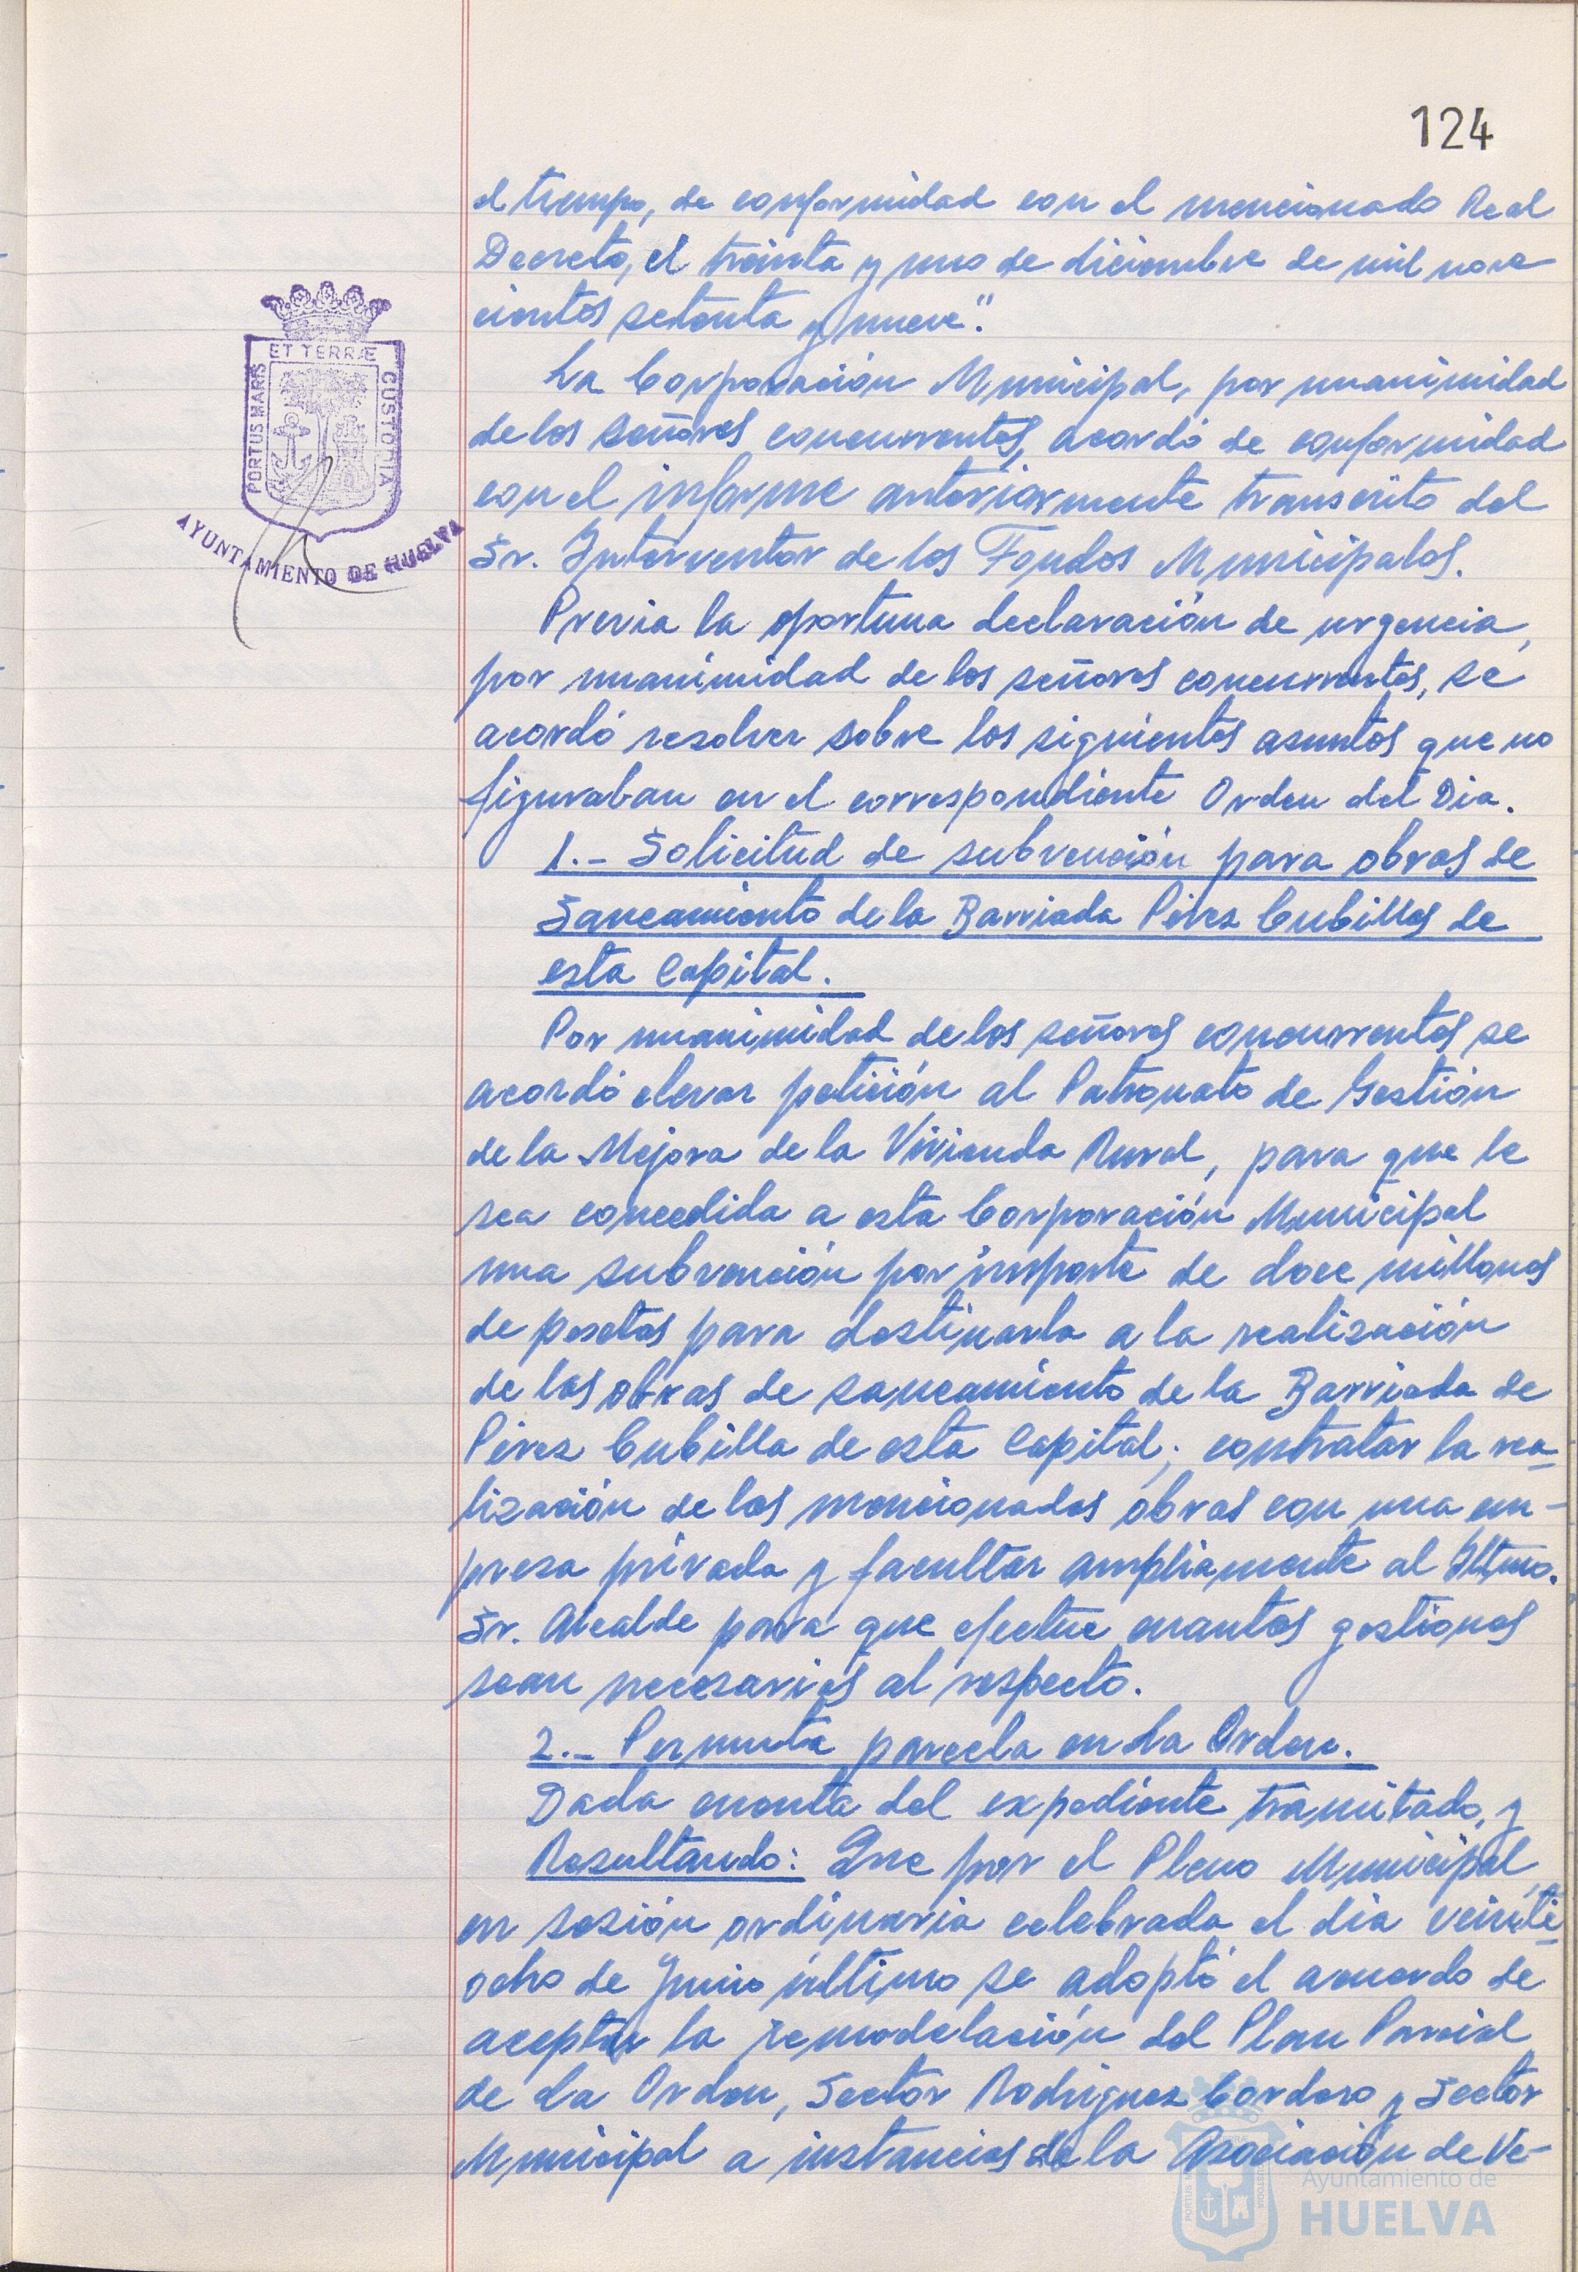 124
el tiempo, de conformidad con el mencionado Real
Decreto, el treinta y uno de diciembre de mil nove
cientos setenta y nueve".
La Corporación Municipal, por unanimidad
de los señores concurrentes, acordó de conformidad
con el informe anteriormente transcrito del
Sr. Interventor de los Fondos Municipales.
Previa la oportuna declaración de urgencia,
por unanimidad de los señores concurrentes, se
acordó resolver sobre los siguientes asuntos que no
figuraban en el correspondiente Orden del Dia.
1.- Solicitud de subvención para obras de
Saneamiento de la Barriada Pérez Cubillas de
esta Capital.
Por unanimidad de los señores concurrentes se
acordó elevar petición al Patronato de Gestión
de la Mejora de la Vivienda Rural, para que le
sea concedida a esta Corporación Municipal
una subvención por importe de doce millones
de pesetas para destinarla a la realización
de las obras de saneamiento de la Barriada de
Pérez Cubilla de esta Capital; contratar la rea-
lización de las mencionadas obras con una em-
presa privada y facultar ampliamente al Iltmo.
Sr. Alcalde para que efectue cuantas gestiones
sean necesarias al respecto.
2.- Permuta parcela en La Orden.
Dada cuenta del expediente tramitado, y
Resultando: Que por el Pleno Municipal,
en sesión ordinaria celebrada el dia veinti-
ocho de Junio último se adoptó el acuerdo de
aceptar la remodelación del Plan Parcial
de La Orden, Sector Rodriguez Cordero y Sector
Municipal a instancias de la Asociación de Ve-
PORTUS MARIS ET TERRÆ CUSTODIA
AYUNTAMIENTO DE HUELVA
Ayuntamiento de
HUELVA